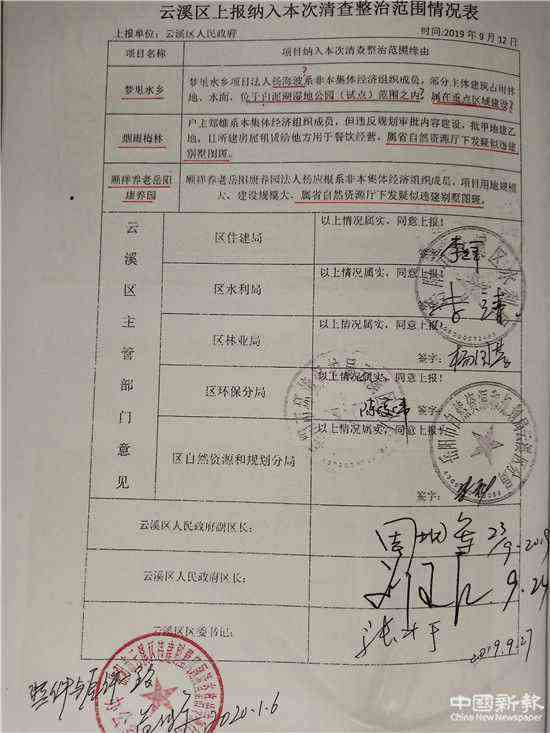 云溪区上报纳入本次清查整治范围情况表
上报单位：云溪区人民政府
时间:2019年9月12日
项目名称
项目纳入本次清查整治范围缘由
梦里水乡
梦里水乡项目法人杨海波系非本集体经济组织成员，部分主体建筑占用林
地、水面，位于白泥湖湿地公园（试点）范围之内？属在重点区域建设？
烟雨梅林
户主郑雄系本集体经济组织成员，但违反规划审批内容建设，批甲地建乙
地，且所建房屋租赁给他方用于餐饮经营，属省自然资源厅下发疑似违建
别墅图斑。
顺祥养老岳阳
康养园
顺祥养老岳阳康养园法人杨应根系非本集体经济组织成员，项目用地规模
大、建设规模大，属省自然资源厅下发疑似违建别墅图斑。
云溪区主管部门意见
区住建局
以上情况属实，同意上报！
签字：
区水利局
以上情况属实，同意上报！
区林业局
以上情况属实，同意上报！
签字：
区环保分局
以上情况属实，同意上报！
签字：
区自然资源和规划分局
以上情况属实，同意上报！
签字：
云溪区人民政府副区长：
23/9-2019
云溪区人民政府区长：
9.24
云溪区区委书记：
2019.9.27
2020.1.6
中國新報
China New Newspress